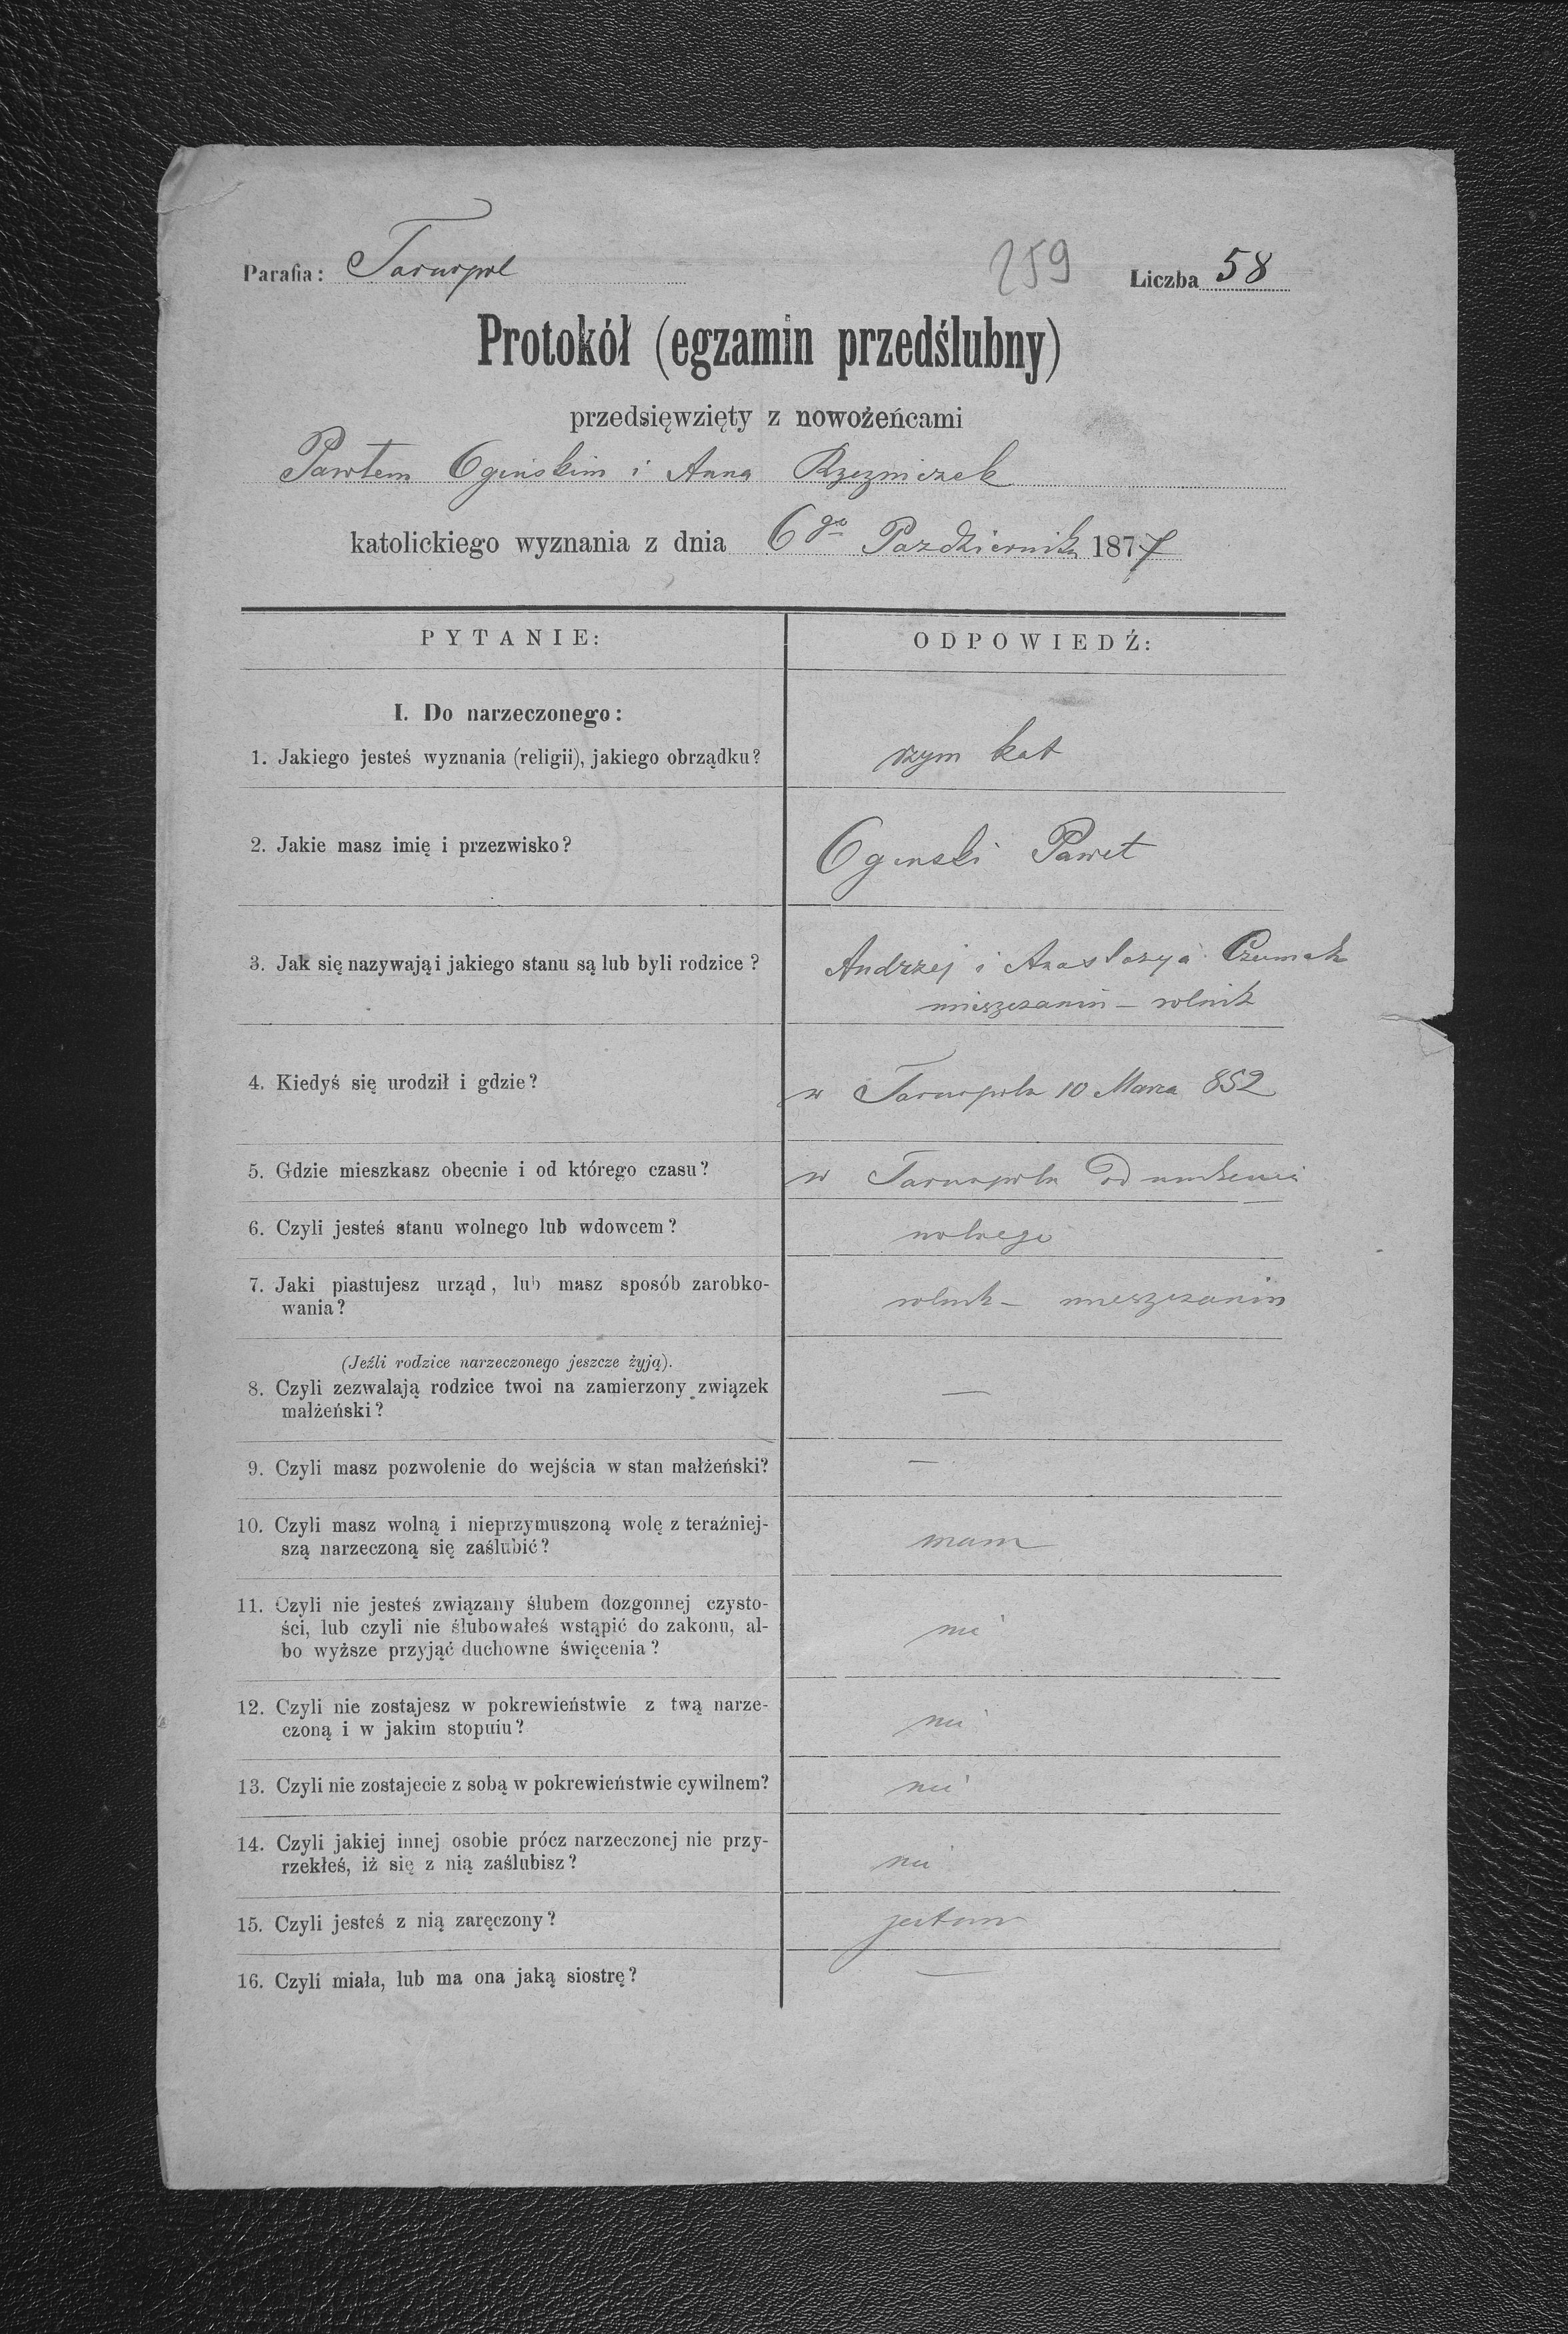 Parafia: Tarnopol 259 Liczba 58
Protokół (egzamin przedślubny)
przedsięwzięty z nowożeńcami
Pawłem Ogińskim i Anna Rzezniczek
katolickiego wyznania z dnia 6go Pazdziernika 1877
PYTANIE: ODPOWIEDŹ:
I. Do narzeczonego:
1. Jakiego jesteś wyznania (religii), jakiego obrządku? rzym kat
2. Jakie masz imię i przezwisko? Oginski Paweł
3. Jak się nazywają i jakiego stanu są lub byli rodzice? Andrzej i Anastazya Czumak
mieszczanin – rolnik
4. Kiedyś się urodził i gdzie? w Tarnopolu 10 Marca 852
5. Gdzie mieszkasz obecnie i od którego czasu? w Tarnopolu od
6. Czyli jesteś stanu wolnego lub wdowcem? wolnego
7. Jaki piastujesz urząd, lub masz sposób zarobko-
wania? rolnik – mieszczanin
(Jeźli rodzice narzeczonego jeszcze żyją).
8. Czyli zezwalają rodzice twoi na zamierzony związek —
małżeński?
9. Czyli masz pozwolenie do wejścia w stan małżeński? —
10. Czyli masz wolną i nieprzymuszoną wolę z teraźniej-
szą narzeczoną się zaślubić? mam
11. Czyli nie jesteś związany ślubem dozgonnej czysto-
ści, lub czyli nie ślubowałeś wstąpić do zakonu, al- nie
bo wyższe przyjąć duchowne święcenia?
12. Czyli nie zostajesz w pokrewieństwie z twą narze-
czoną i w jakim stopuiu? nie
13. Czyli nie zostajecie z sobą w pokrewieństwie cywilnem? nie
14. Czyli jakiej innej osobie prócz narzeczonej nie przy-
rzekłeś, iż się z nią zaślubisz? nie
15. Czyli jesteś z nią zaręczony? jestem
16. Czyli miała, lub ma ona jaką siostrę? —